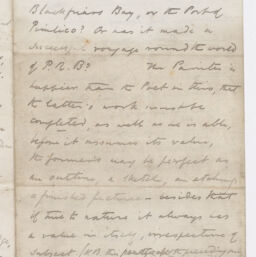 Blackfriars Bay, or the Port of
Pimlico? Or has it made a
successful voyage round the world
of P.R.B? The Painter is
happier than the Poet in this, that
the latter's work must be
completed, as well as he is able,
before it assumes its value,
the former's may be perfect as
an outline, a sketch, an etching,
a finished picture – besides that
if true to nature it always has
a value in itself, irrespective of
subject